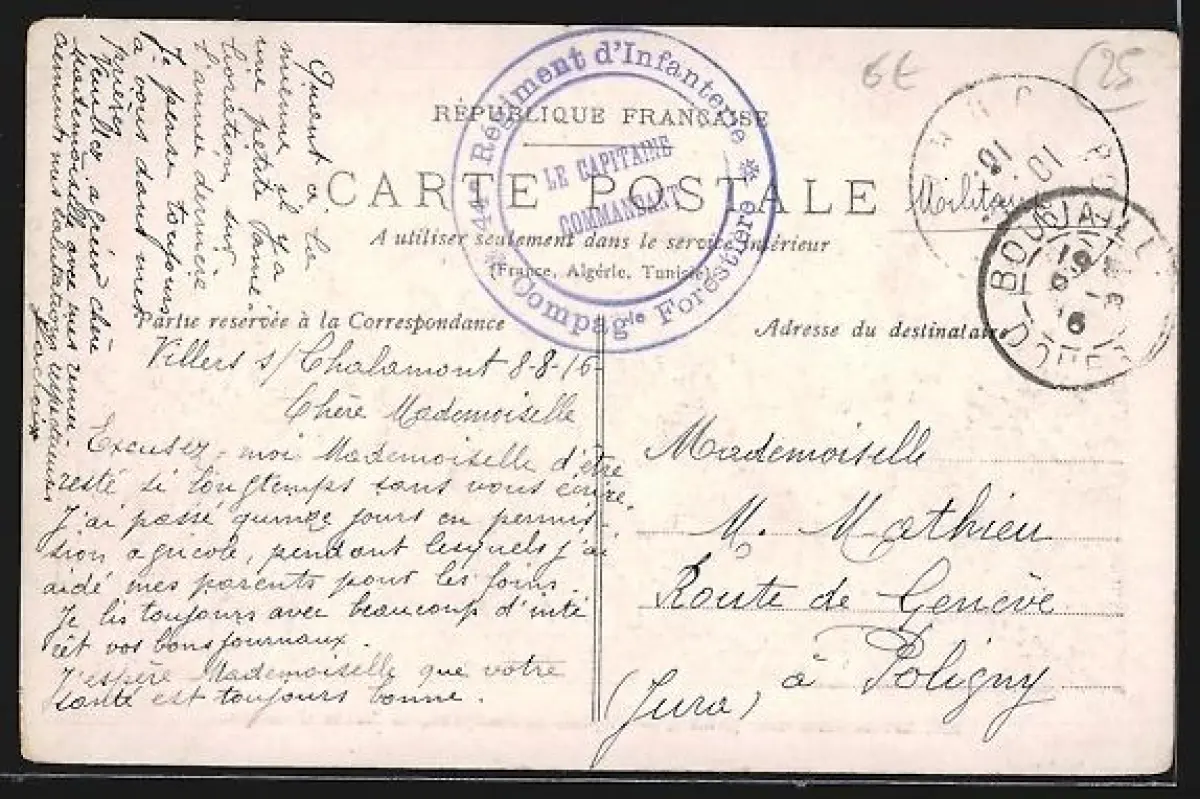 6 €
25
Régiment d'Infanterie
LE CAPITAINE
COMMANDANT
Compag^ie Forestière
RÉPUBLIQUE FRANÇAISE
CARTE POSTALE
A utiliser seulement dans le service intérieur
(France, Algérie, Tunisie)
Militaire
BOUJAILLES
DOUBS
Partie reservée à la Correspondance
Adresse du destinataire
Villers s/ Chalamont 8-8-16
Chère Mademoiselle
Excusez-moi Mademoiselle d'être
resté si longtemps sans vous écrire.
J'ai passé quinze jours en permis-
sion agricole, pendant lesquels j'ai
aidé mes parents pour les foins.
Je lis toujours avec beaucoup d'inté
rêt vos bons journaux.
J'espère Mademoiselle que votre
santé est toujours bonne.
Quent à la
mienne il y a
une petite amé-
lioration sur
l'année dernière
Je pense toujours
à vous dans mes
prières
Veuillez agréer chère
Mademoiselle avec mes remer-
ciements mes salutations respectueuses
Mademoiselle
M. Mathieu
Route de Genève
à Poligny
(Jura)